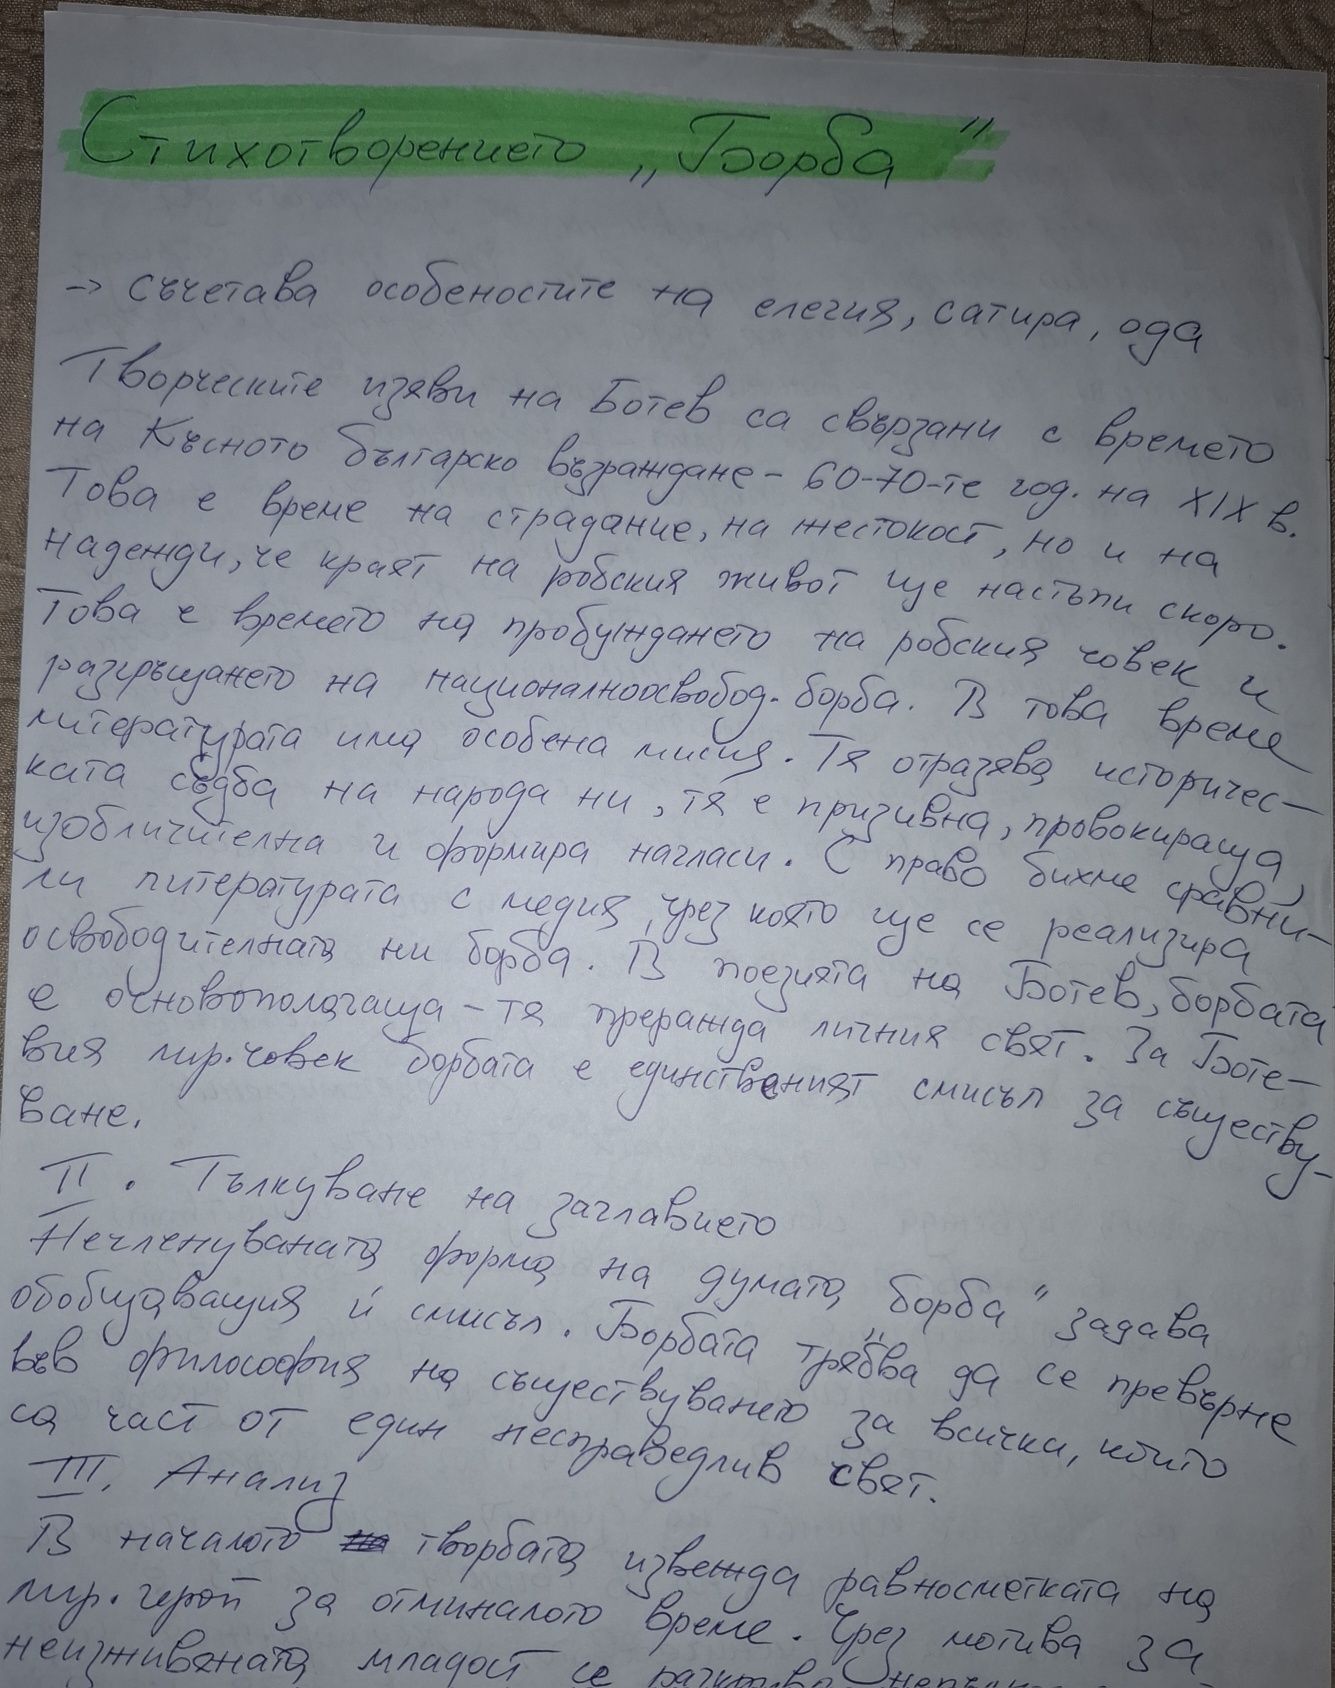 Стихотворението „Борба"
-> съчетава особеностите на елегия, сатира, ода
Творческите изяви на Ботев са свързани с времето
на Късното българско възраждане - 60-70-те год. на XIX в.
Това е време на страдание, на жестокост, но и на
надежди, че краят на робския живот ще настъпи скоро.
Това е времето на пробуждането на робския човек и
разгръщането на националноосвобод. борба. В това време
литературата има особена мисия. Тя отразява историчес-
ката съдба на народа ни, тя е призивна, провокираща,
изобличителна и формира нагласи. С право бихме сравни-
ли литературата с медия, чрез която ще се реализира
освободителната ни борба. В поезията на Ботев, борбата
е основополагаща - тя преражда личния свят. За Боте-
вия лир. човек борбата е единственият смисъл за съществу-
ване.
II. Тълкуване на заглавието
Нечленуваната форма на думата „борба" задава
обобщаващия ѝ смисъл. Борбата трябва да се превърне
във философия на съществуването за всички, които
са част от един несправедлив свят.
III. Анализ
В началото творбата извежда равносметката на
лир. герой за отминалото време. Чрез мотива за
неизживяната младост се